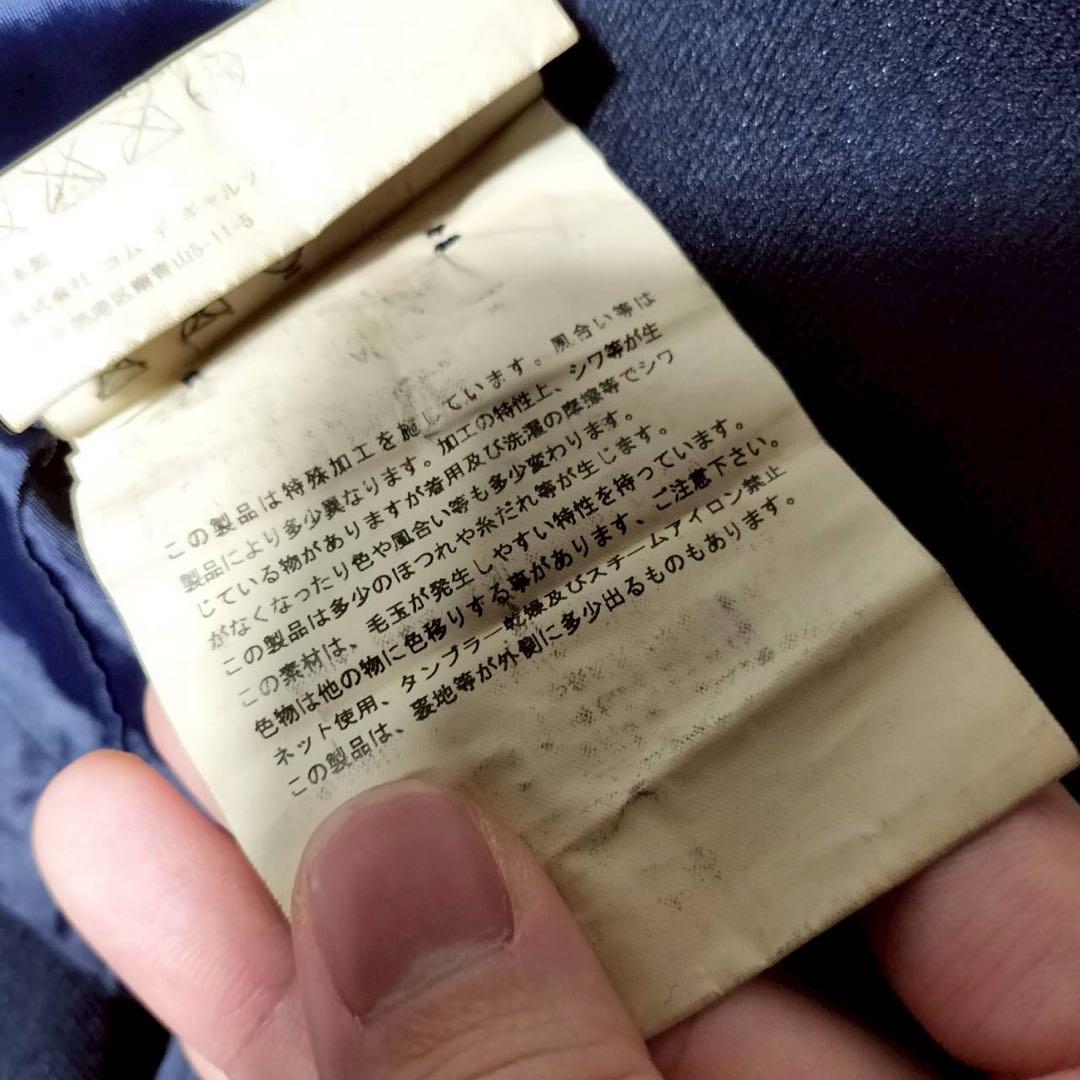 日本製
株式会社 コム デ ギャルソ
港区南青山5-11-5
この製品は特殊加工を施しています。風合い等は
製品により多少異なります。加工の特性上、シワ等が生
じている物がありますが着用及び洗濯の摩擦等でシワ
がなくなったり色や風合い等も多少変わります。
この製品は多少のほつれや糸だれ等が生じます。
この素材は、毛玉が発生しやすい特性を持っています。
色物は他の物に色移りする事があります、ご注意下さい。
ネット使用、タンブラー乾燥及びスチームアイロン禁止
この製品は、裏地等が外側に多少出るものもあります。